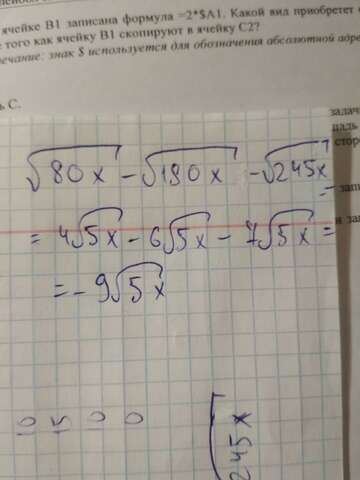 ячейке B1 записана формула =2*$A1. Какой вид приобретет
того как ячейку B1 скопируют в ячейку C2?
чание: знак $ используется для обозначения абсолютной адре
ь С.
задач
√80x − √190x − √245x
= 4√5x − 6√5x − 7√5x =
= − 9√5x
245x